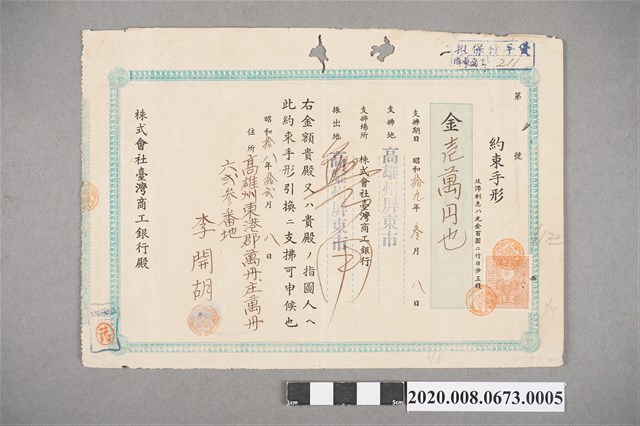 擔保附手貸
屏東商工
211
第 號
約束手形
延滯利息ハ元金百圓ニ付日步五錢
金壱萬円也
支拂期日 昭和拾九年 參月 八日
支拂地 高雄州屏東市
支拂場所 株式會社臺灣商工銀行
振出地 高雄州屏東市
右金額貴殿又ハ貴殿ノ指圖人へ
此約束手形引換ニ支拂可申候也
昭和拾八年拾弐月 八日
住所 高雄州東港郡萬丹庄萬丹
六弐參番地
李開胡
株式會社臺灣商工銀行殿
1cm
5cm
2020.008.0673.0005